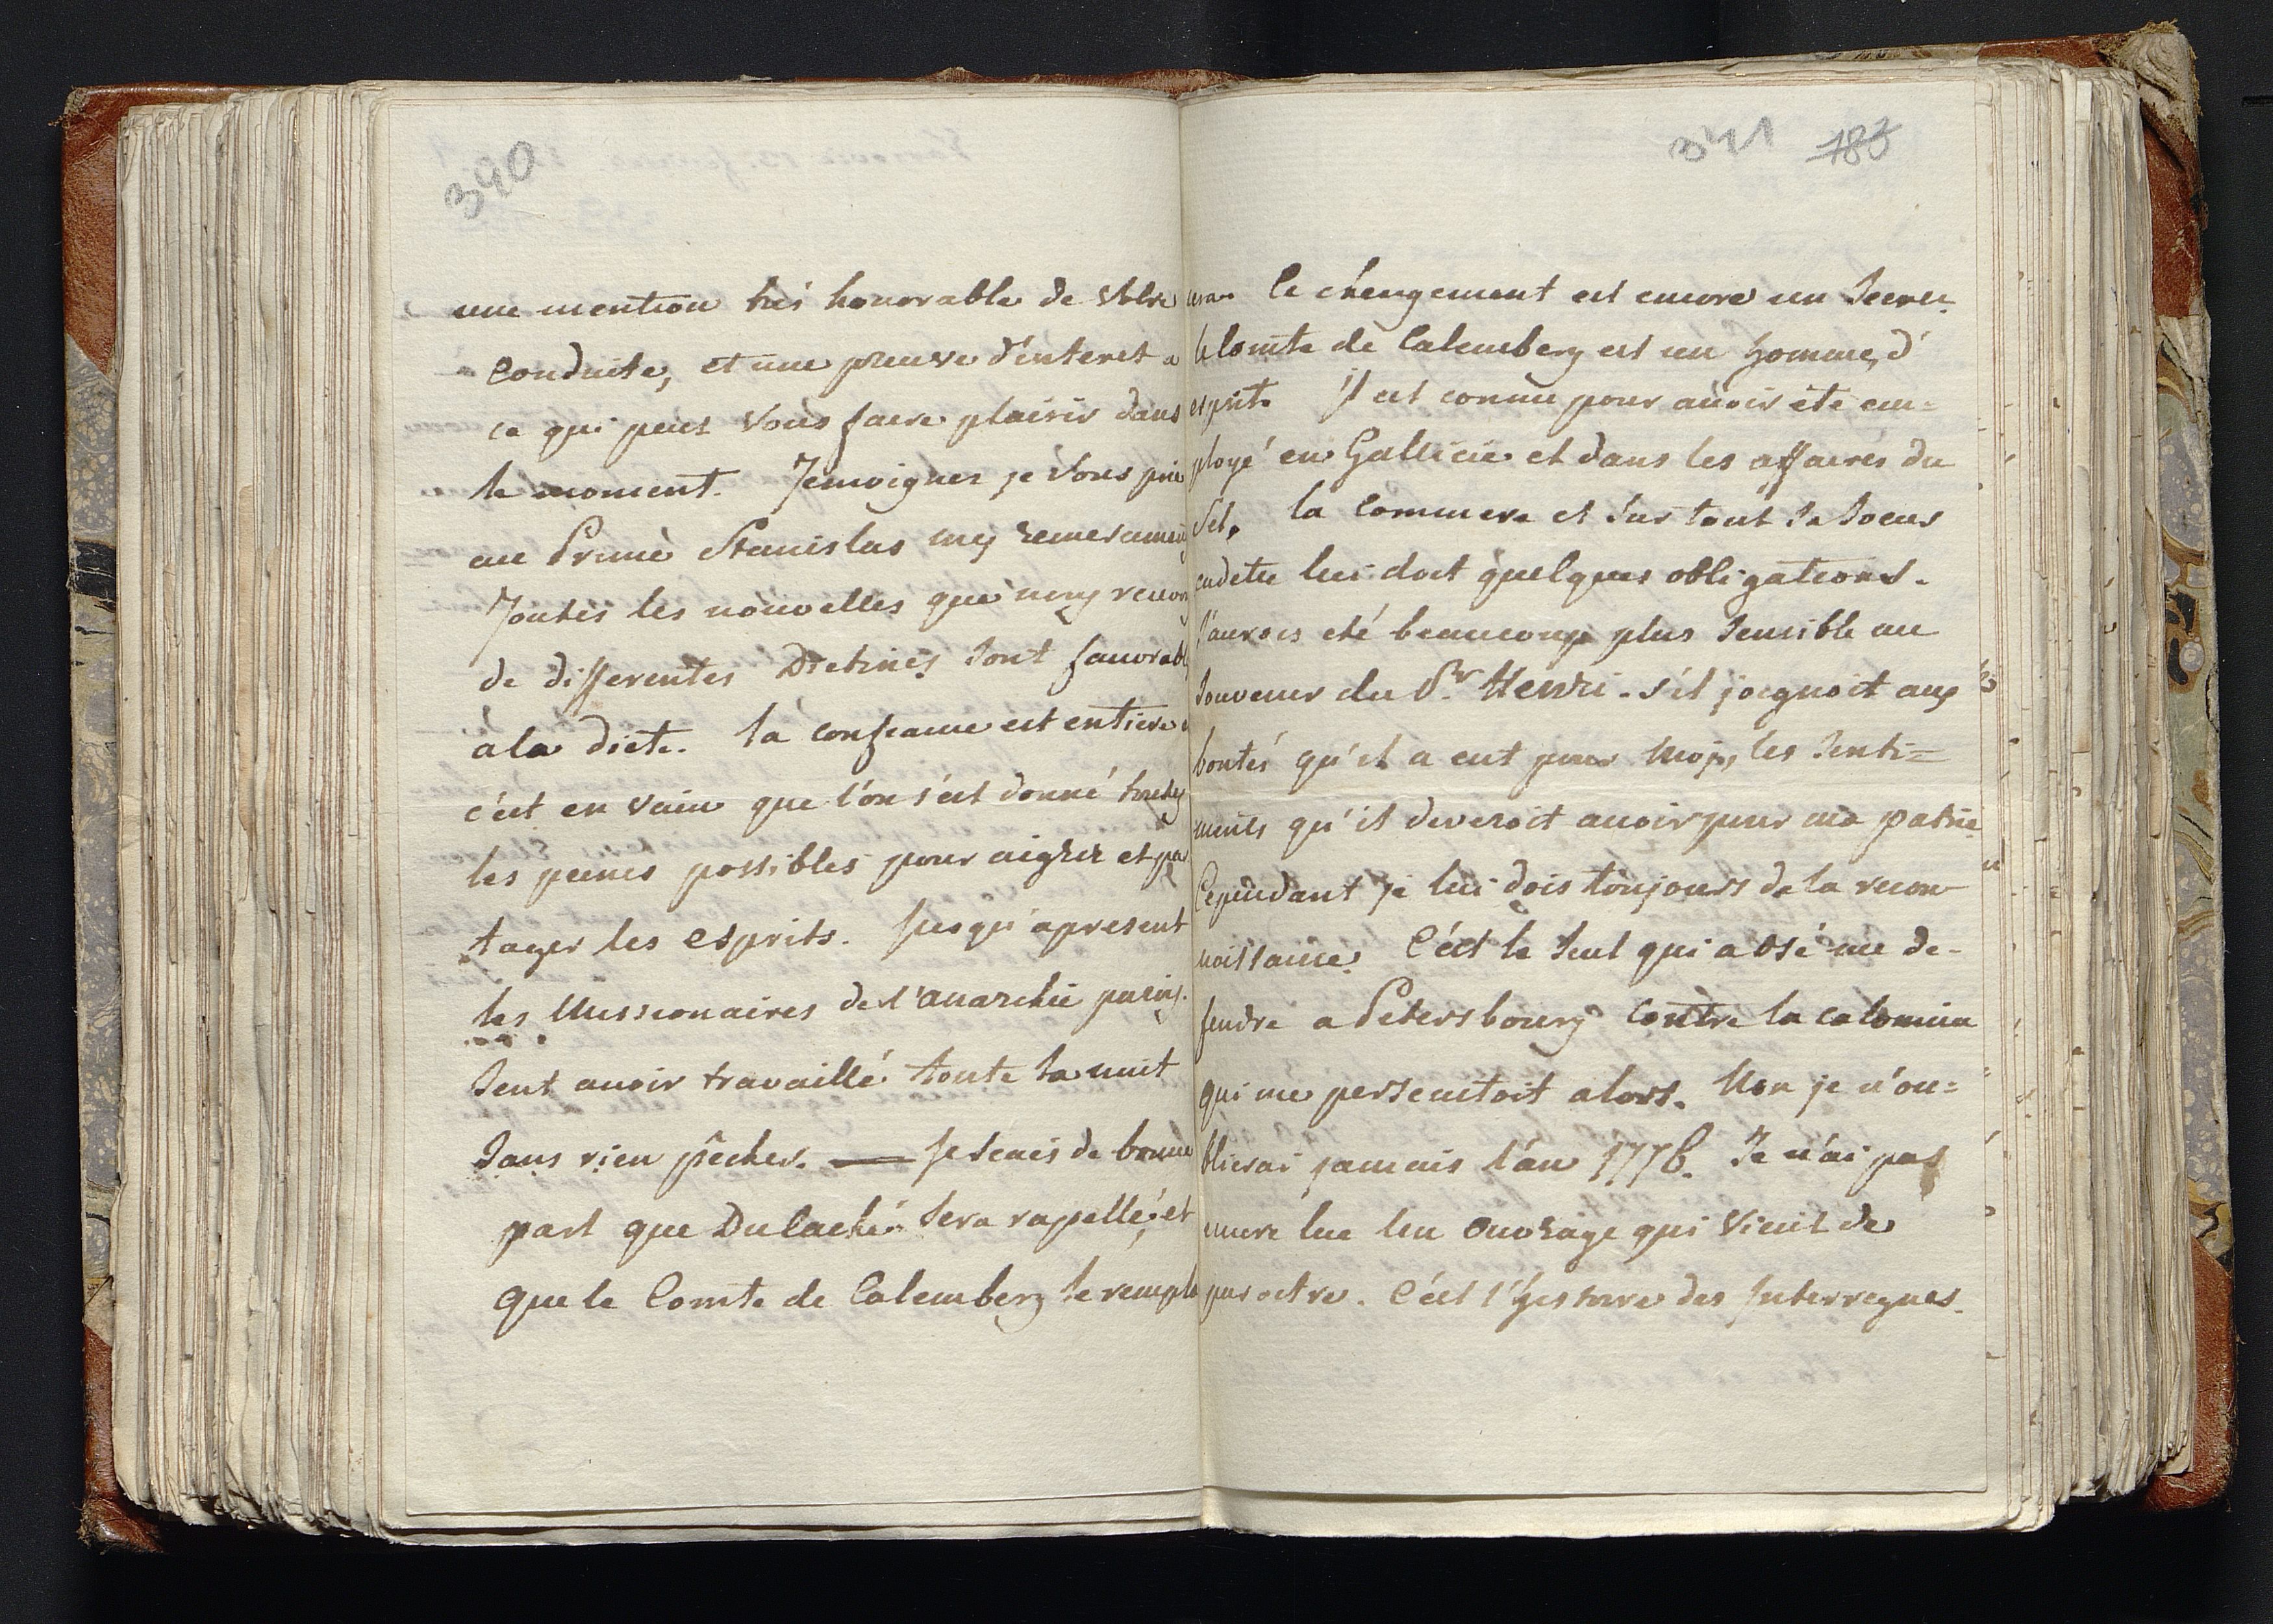 390
une mention très honorable de Votre
Conduite, et une preuve d'interet a
ce qui peut Vous faire plaisir dans
le moment. Temoignez je Vous prie
au Prince Stanislas mes remerciments
Toutes les nouvelles que nous recevons
de differentes Dietines sont favorables
à la diete. la confiance est entiere
c'est en vain que l'on s'est donné toutes
les peines possibles pour aigrir et par
tager les esprits. Jusqu'apresent
les Missionaires de l'anarchie puris
sent avoir travaillé toute la nuit
Sans rien pêcher. — Je scais de bonne
part que Dulaché sera rapellé, et
que le Comte de Calemberg le rempla
341 183
cera. Ce changement est encore un Secret.
le Comte de Calemberg est un homme d'
esprit. Il est connu pour avoir été em=
ployé en Gallicie et dans les affaires du
Sel. la Commere et sur tout sa Soeur
cadette lui doit quelques obligations.
J'aurois eté beaucoup plus sensible au
Souvenir du Pr. Henri. s'il joignoit aux
bontés qu'il a eut pour Moj, les Senti=
ments qu'il deveroit avoir pour ma patrie
Cependant je lui dois toujours de la recon
noissance. C'est le seul qui a osé me de-
fendre a Petersbourg Contre la calomnie
qui me persecutoit alors. Non je n'ou=
blierai jamais l'an 1776. Je n'ai pas
encore lue Un Ouvrage qui Vient de
paroitre. C'est l'histoire des Interregnes.